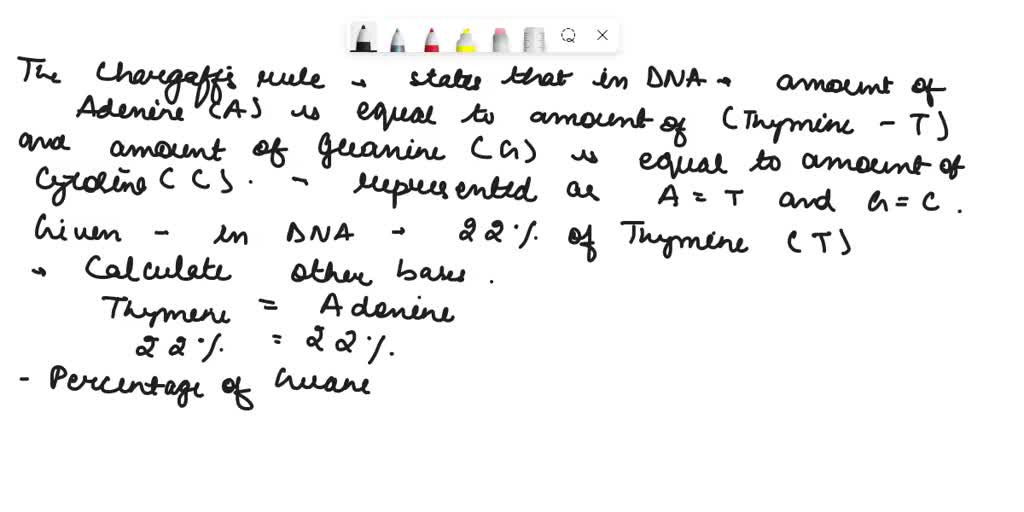 The Chargaff's rule → states that in DNA → amount of
Adenine (A) is equal to amount of (Thymine - T)
and amount of Guanine (G) is equal to amount of
Cytosine (C). → represented as A = T and G = C.
Given - in DNA → 22% of Thymine (T)
→ Calculate other bases.
Thymine = Adenine
22% = 22%.
- Percentage of Guane